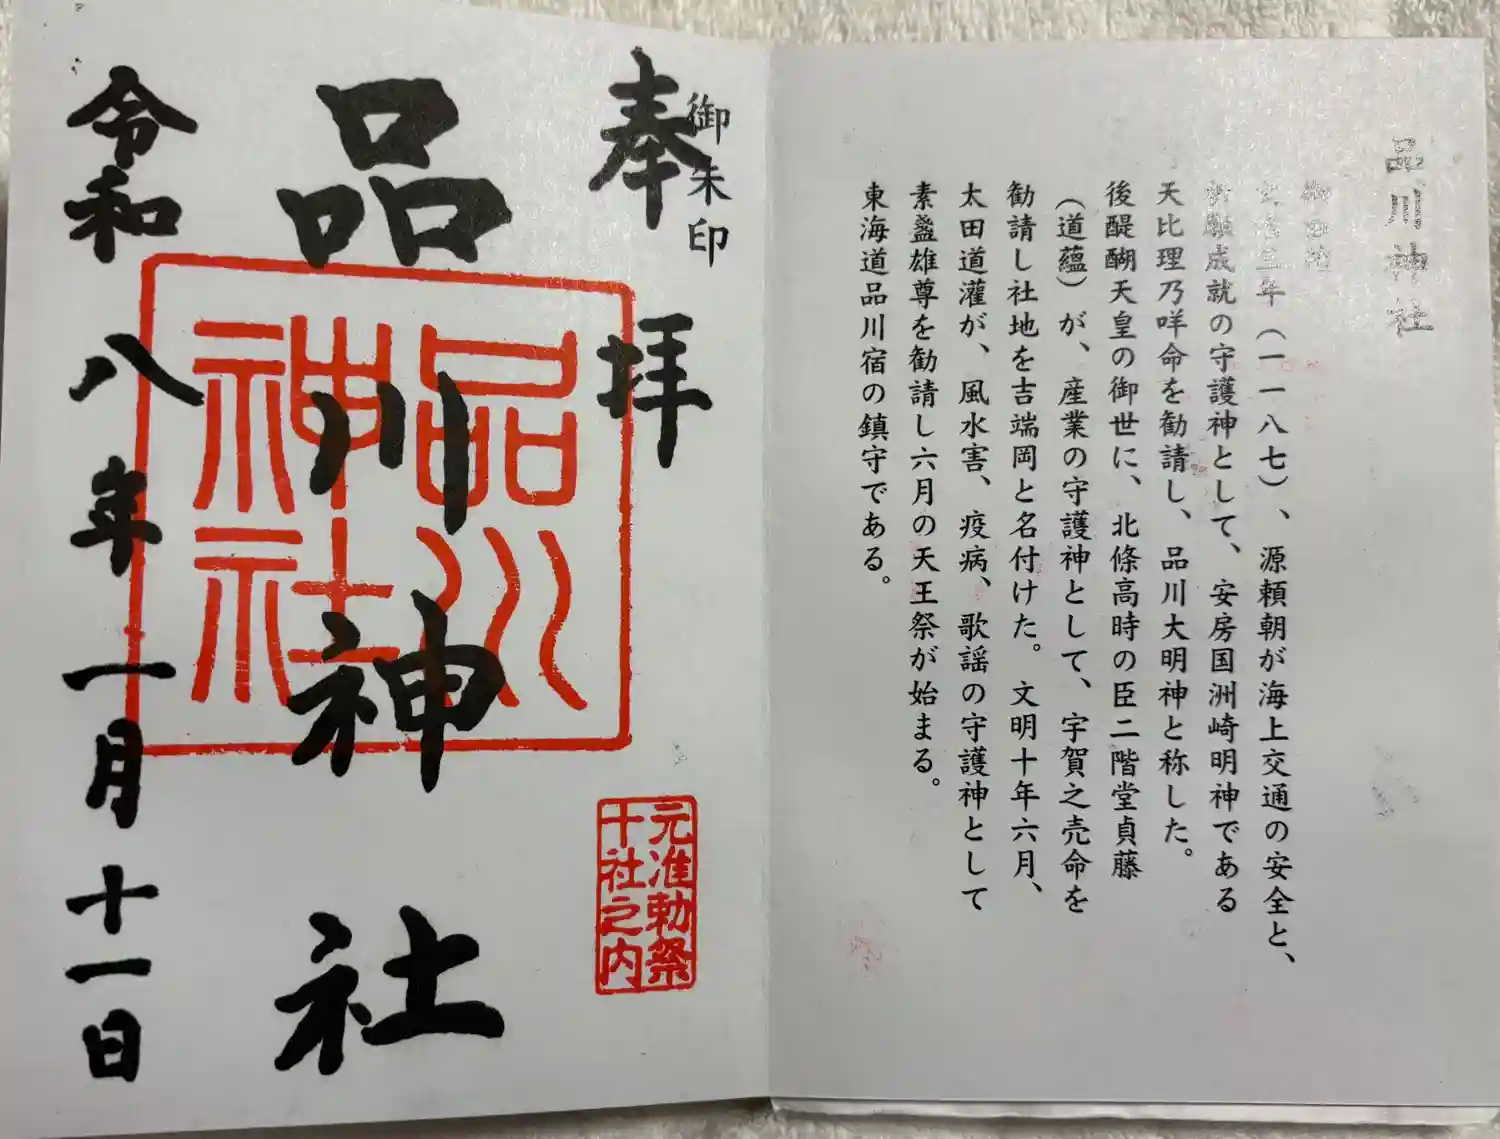 品川神社
御由緒
文治三年（一一八七）、源頼朝が海上交通の安全と、
祈願成就の守護神として、安房国洲崎明神である
天比理乃咩命を勧請し、品川大明神と称した。
後醍醐天皇の御世に、北條高時の臣二階堂貞藤
（道蘊）が、産業の守護神として、宇賀之売命を
勧請し社地を吉端岡と名付けた。文明十年六月、
太田道灌が、風水害、疫病、歌謡の守護神として
素盞雄尊を勧請し六月の天王祭が始まる。
東海道品川宿の鎮守である。
御朱印
奉拝
品川神社
令和八年一月十一日
品川
神社
元准勅祭
十社之内